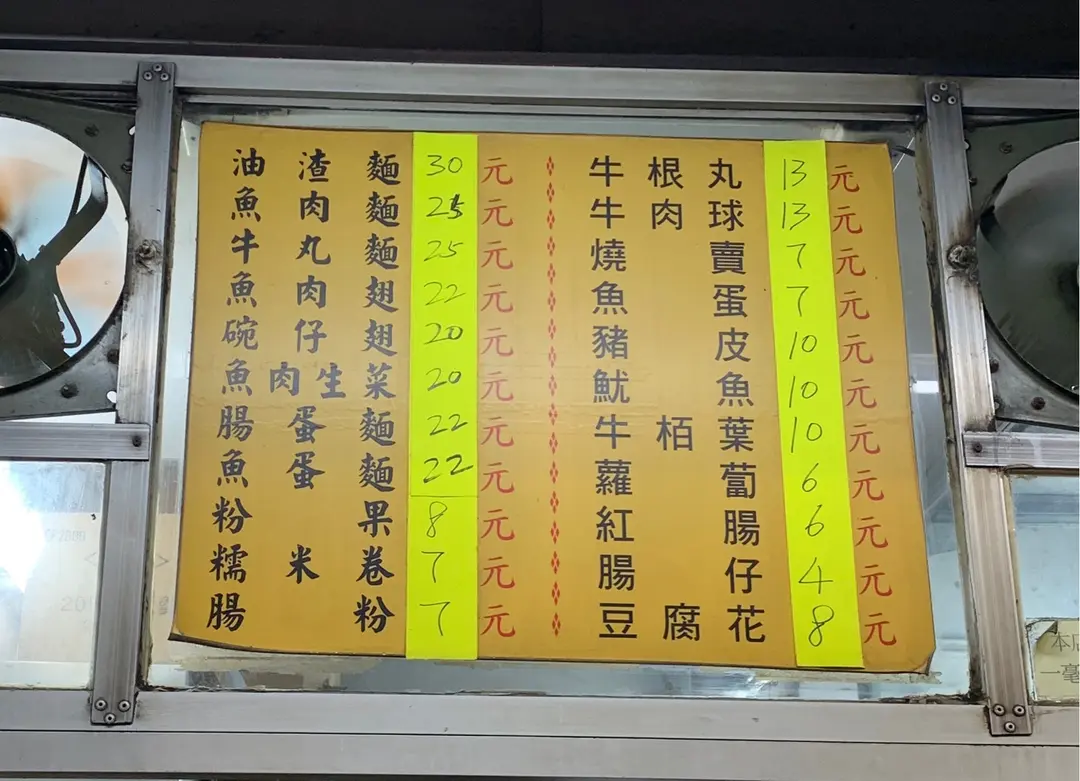 油渣麵 30 元
魚肉麵 25 元
牛丸麵 25 元
魚肉翅 22 元
碗仔翅 20 元
魚肉生菜 20 元
腸蛋麵 22 元
魚蛋麵 22 元
粉果 8 元
糯米卷 7 元
腸粉 7 元
牛根丸 13 元
牛肉球 13 元
燒賣 7 元
魚蛋 7 元
豬皮 10 元
魷魚 10 元
牛栢葉 10 元
蘿蔔 6 元
紅腸 6 元
腸仔 4 元
豆腐花 8 元
本店
一毫